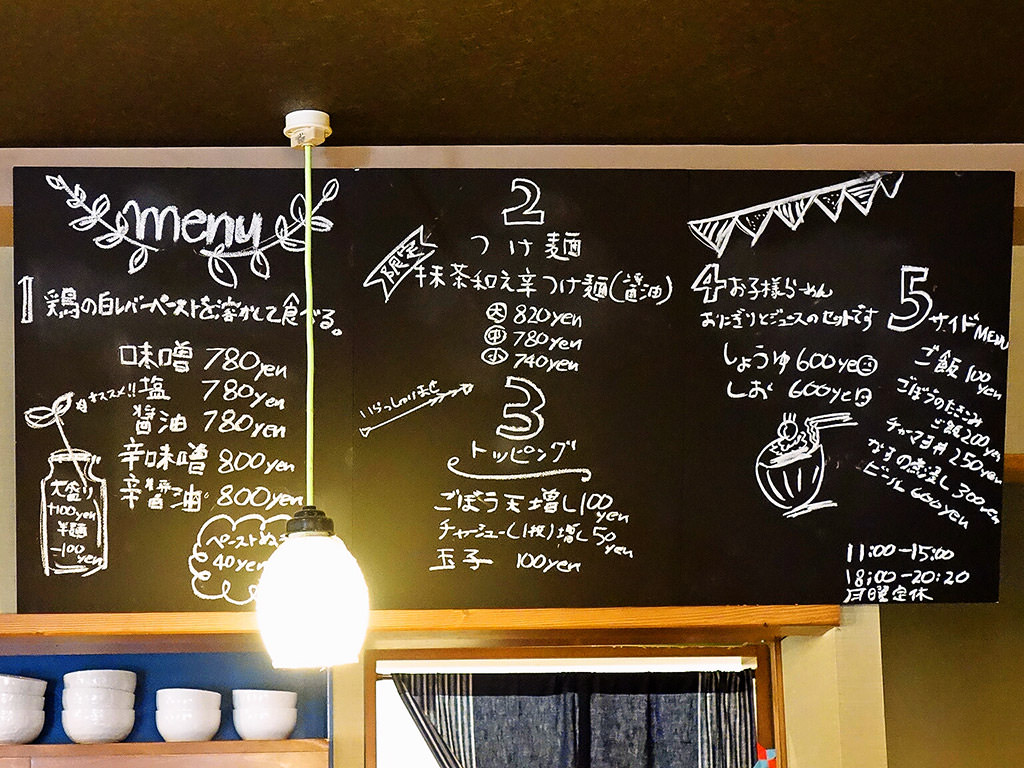 menu
1 鶏の白レバーペーストを溶かして食べる。
味噌 780yen
オススメ!! 塩 780yen
醤油 780yen
辛味噌 800yen
辛醤油 800yen
大盛り
+100yen
半麺
-100
yen
ペーストぬき
40yen
2
つけ麺
限定
抹茶和え辛つけ麺(醤油)
大 820yen
中 780yen
小 740yen
いらっしゃいませ
3
トッピング
ごぼう天増し100
yen
チャーシュー(1枚)増し50
yen
玉子 100yen
4 お子様らーめん
おにぎりとジュースのセットです
しょうゆ 600yen
しお 600yen
5 サイドMENU
ご飯 100
yen
ごぼうのたきこみ
ご飯200yen
チャーマヨ丼 250yen
なすの煮浸し 300yen
ビール 600yen
11:00-15:00
18:00-20:20
月曜定休